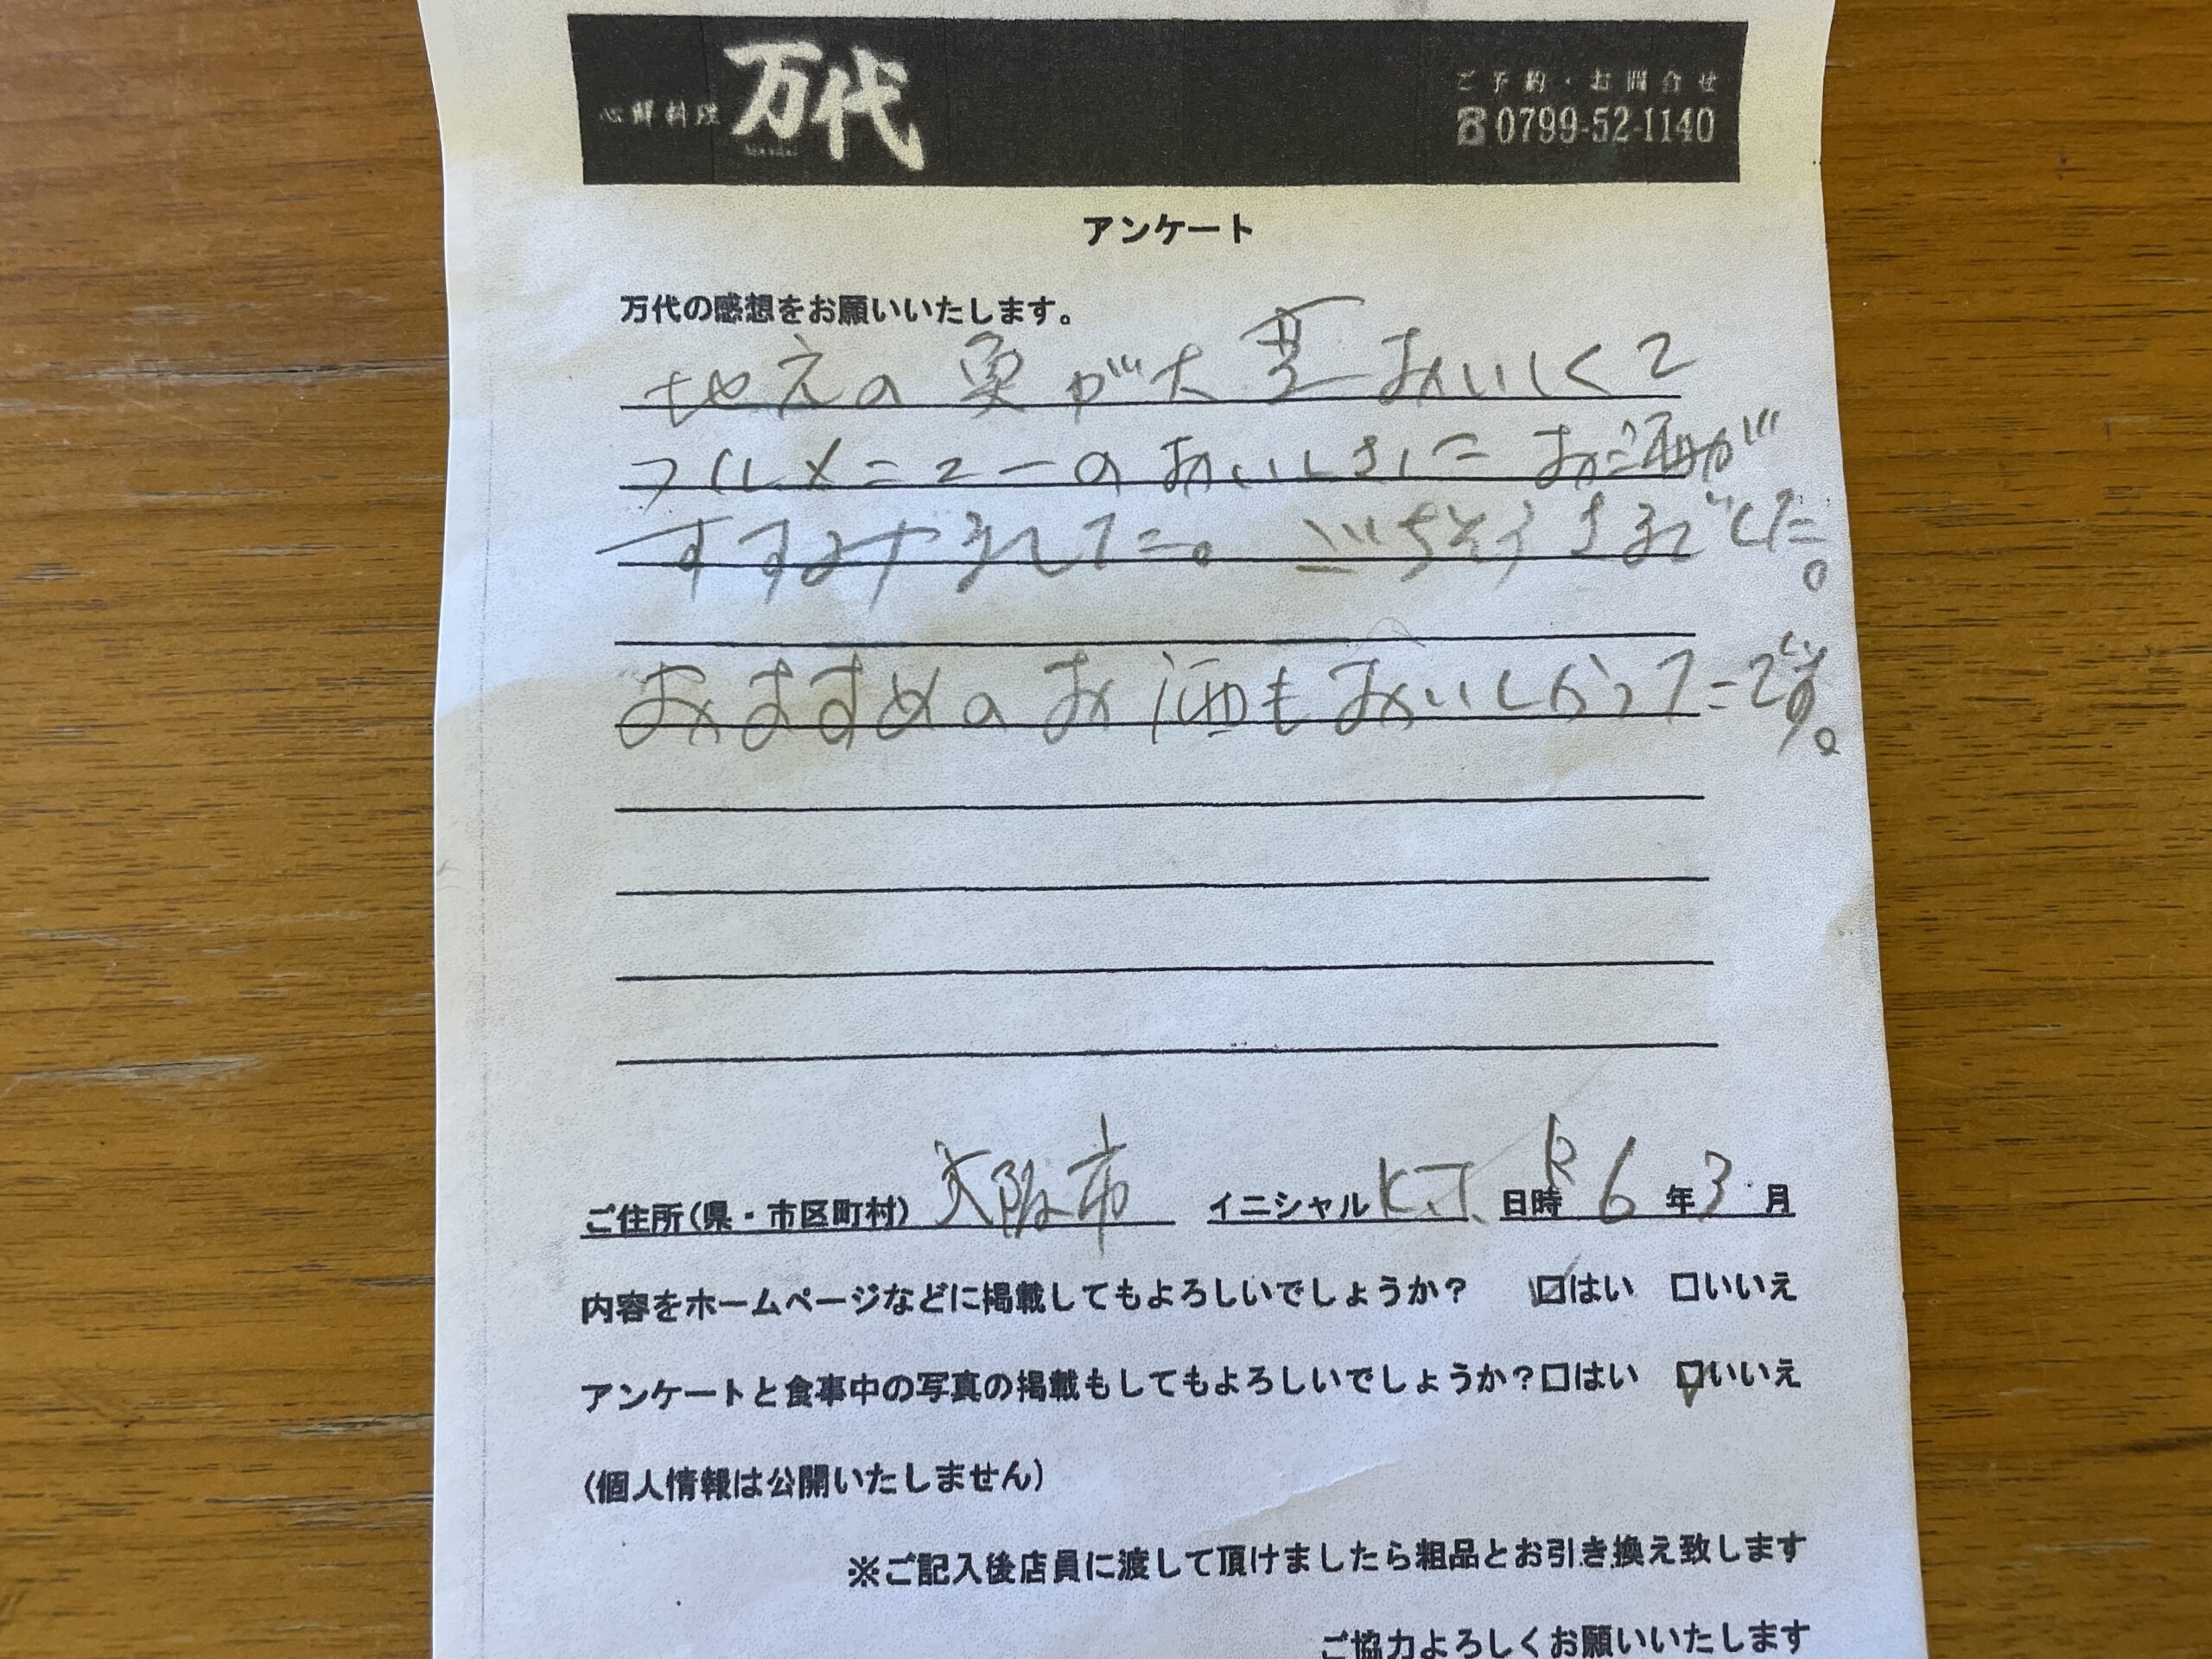 心鮮料理 万代
ご予約・お問合せ
☎0799-52-1140
アンケート
万代の感想をお願いいたします。
地元の魚が大変おいしくて
フルメニューのおいしさに お酒が
すすみました。 ごちそうさまでした。
おすすめのお酒もおいしかったです。
ご住所(県・市区町村) 大阪市 イニシャル K.J. 日時 R6年3月
内容をホームページなどに掲載してもよろしいでしょうか? ☑はい □いいえ
アンケートと食事中の写真の掲載もしてもよろしいでしょうか?□はい ☑いいえ
(個人情報は公開いたしません)
※ご記入後店員に渡して頂けましたら粗品とお引き換え致します
ご協力よろしくお願いいたします